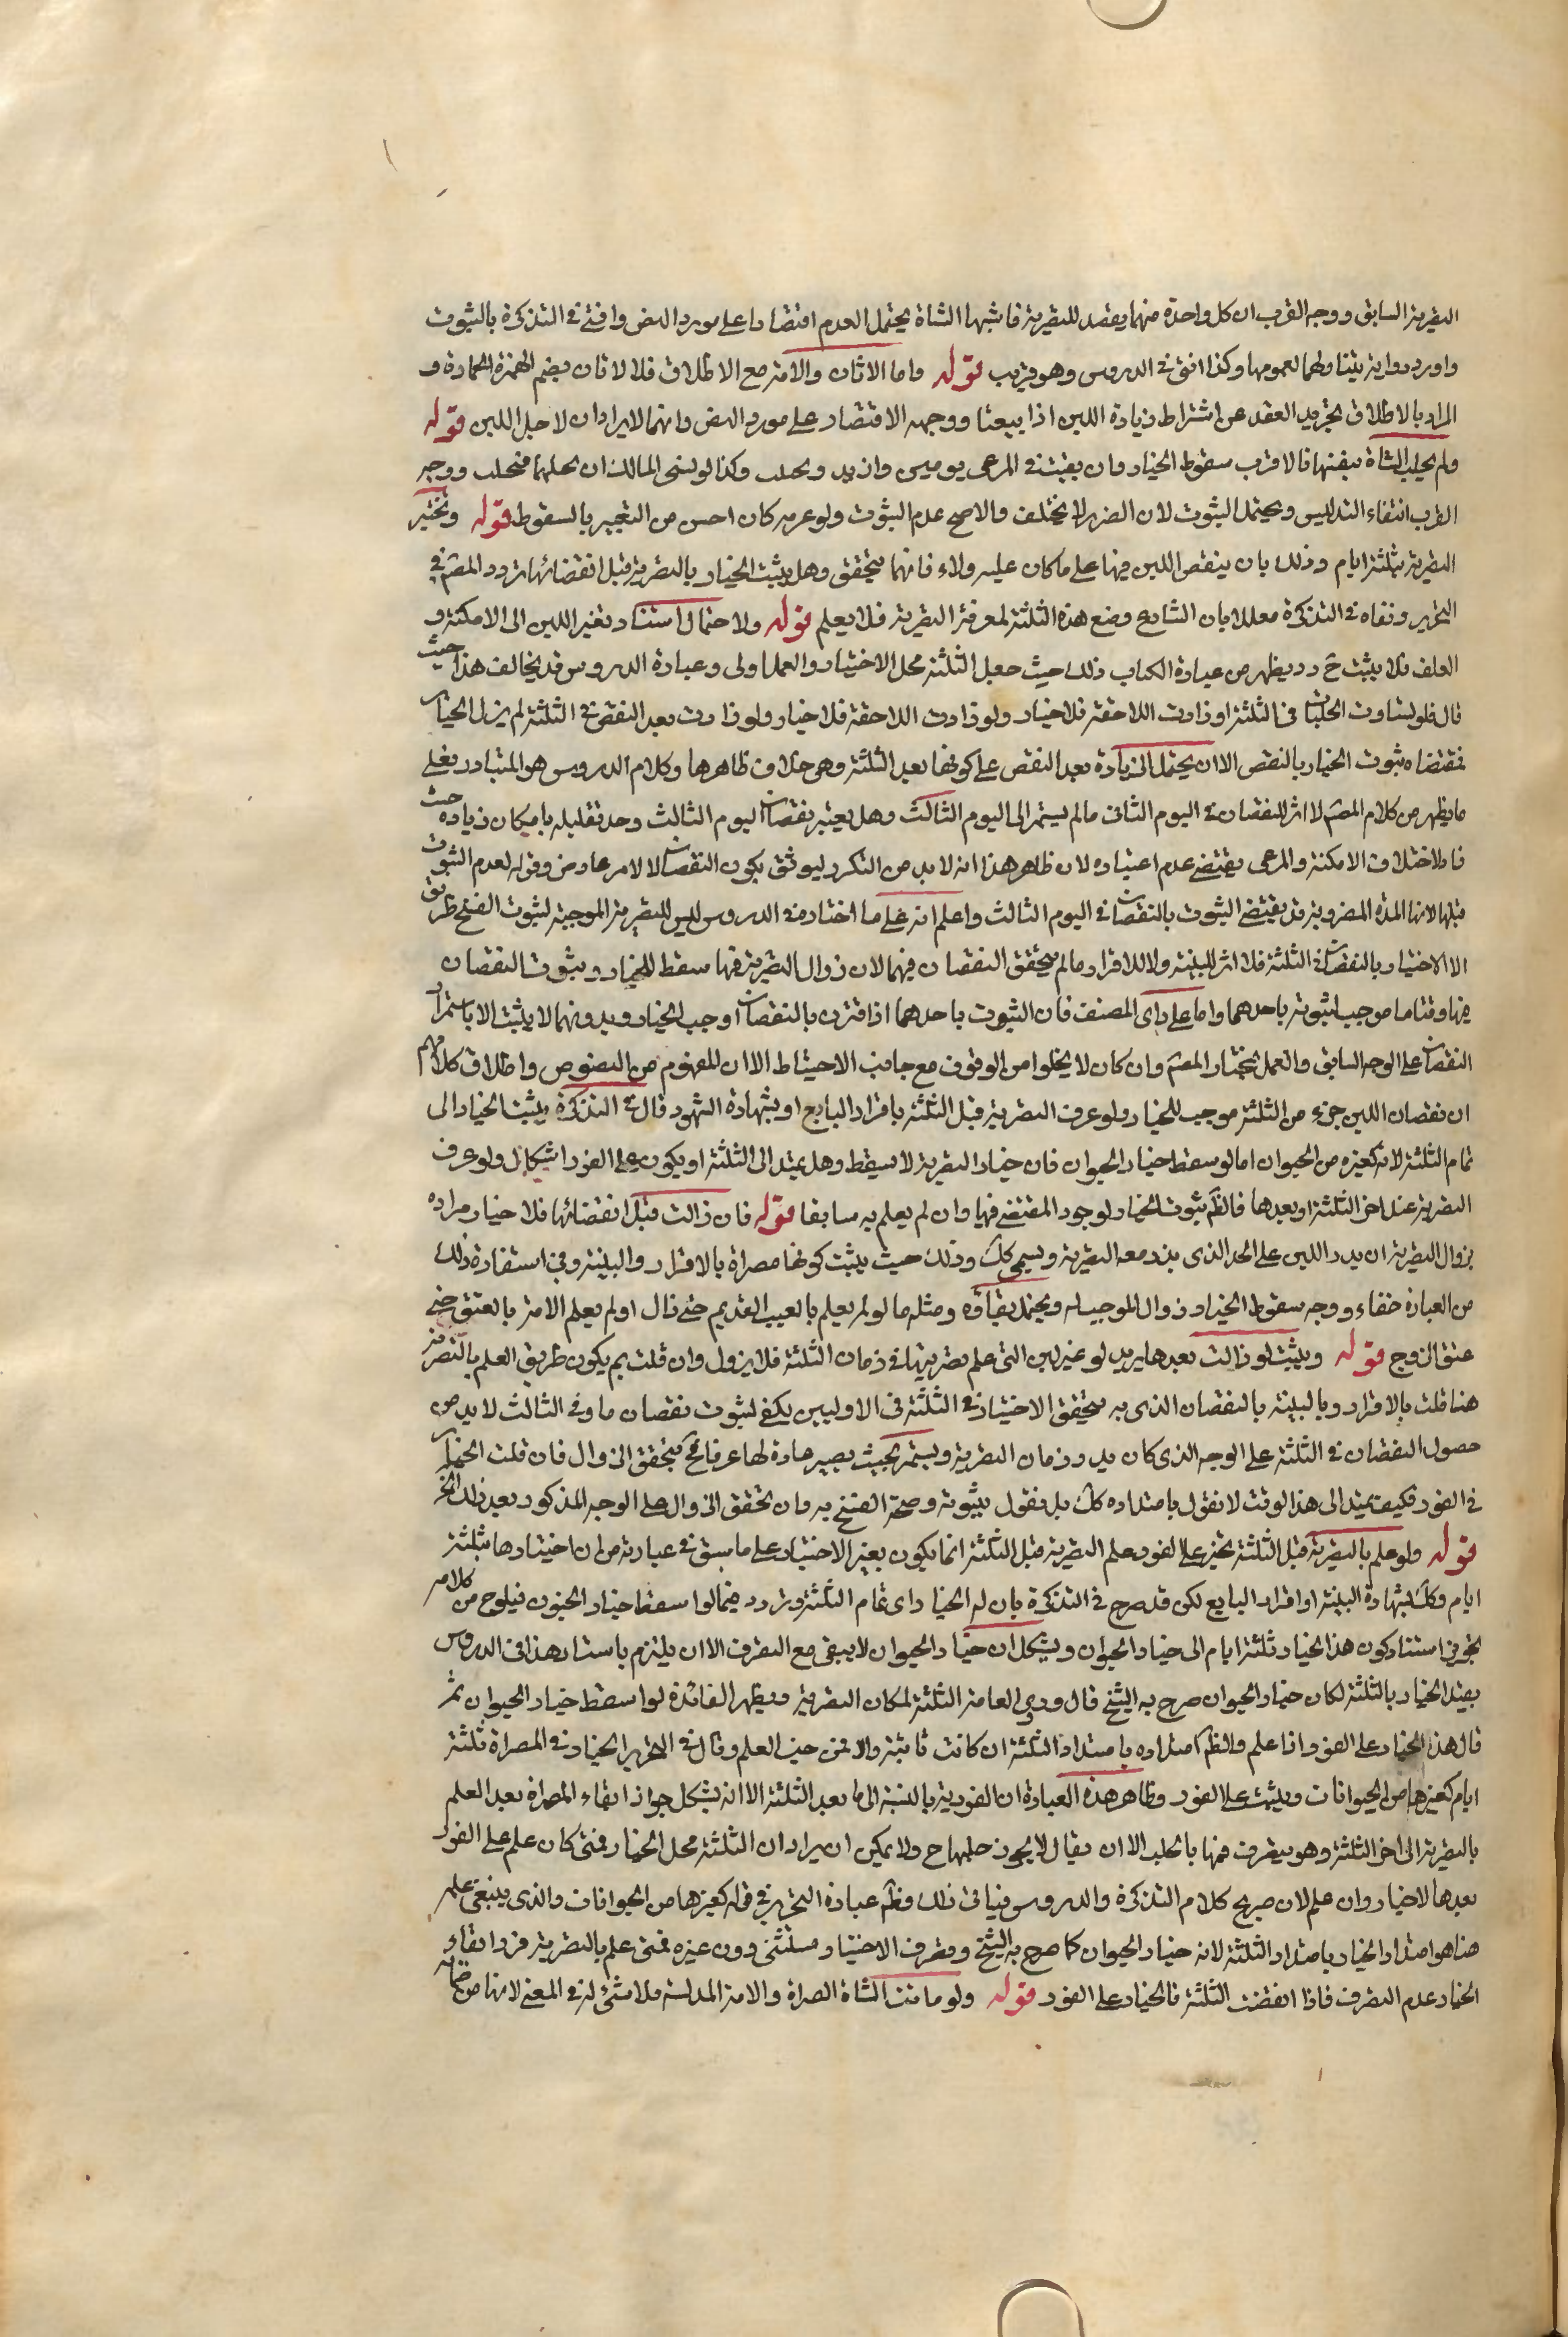 التصرية السابق ووجه القرب ان كل واحدة منهما يقصد للتصرية فاشبها الشاة يحتمل العدم اقتصارا على مورد النص وافتى في التذكرة بالثبوت
واورد رواية يتناولهما لعمومها وكذا افتى في الدروس وهو قريب قوله واما الاتان والامة مع الاطلاق فلا الاتان بضم الهمزة الحمارة و
المراد بالاطلاق تجريد العقد عن اشتراط زيادة اللبن اذا بيعتا ووجهه الاقتصار على مورد النص وانهما لا يرادان لاجل اللبن قوله
ولم يحلب الشاة بنفسها فالاقرب سقوط الخيار وان بقيت في المرعى يومين وازيد وتحلب وكذا لو نسي المالك ان يحلبها فتحلب ووجه
القرب انتفاء التدليس ويحتمل الثبوت لان الضرر لا يختلف والاصح عدم الثبوت ولو عبر به كان احسن من التعبير بالسقوط قوله وتختبر
التصرية بثلثة ايام وذلك بان ينقص اللبن فيها على ما كان عليه ولاء فانها تتحقق وهل يثبت الخيار بالتصرية قبل انقضائها تردد المصنف في
التحرير ونفاه في التذكرة معللا بان الشارع وضع هذه الثلثة لمعرفة التصرية فلا يعلم قوله ولاحتمال استناد تغير اللبن الى الامكنة و
العلف فلا يثبت ح رد ويظهر من عبارة الكتاب ذلك حيث جعل الثلثة محل الاختيار والعمل اولى وعبارة الدروس قد يخالف هذا حيث
قال فلو تساوت الحلبات في الثلثة او زادت اللاحقة فلا خيار ولو زادت بعد النقص في الثلثة لم يزل الخيار
فمقتضاه ثبوت الخيار بالنقص الا ان يحتمل الزيادة بعد النقص على كونها بعد الثلثة وهو خلاف ظاهرها وكلام الدروس هو المتبادر فعلى
ما يظهر من كلام المصنف لا اثر للنقصان في اليوم الثاني ما لم يستمر الى اليوم الثالث وهل يعتبر نقصان اليوم الثالث وحده تعليله بامكان زيادته حيث
فاختلاف الامكنة والمرعى يقتضي عدم اعتباره لان ظاهر هذا انه لا بد من التكرر ليوثق بكون النقصان لا لامر عارض وقوله لعدم الثبوت
قبلها لانها المدة المضروبة قد يقتضي الثبوت بالنقصان في اليوم الثالث واعلم انه على ما اختاره في الدروس ليس للتصرية الموجبة لثبوت الفسخ طريق
الا الاختبار بالنقصان في الثلثة فلا اثر للبينة ولا للاقرار ما لم يتحقق النقصان فيهما لان زوال التصرية فيها مسقط للخيار وثبوت النقصان
فيها وقتا ما موجب لثبوته باحدهما واما على راي المصنف فان الثبوت باحدهما اذا اقترن بالنقصان اوجب الخيار وبدونهما لا يثبت الا باستمرار
النقصان على الوجه السابق والعمل بمختار المصنف وان كان لا يخلوا من الوقوف مع جانب الاحتياط الا ان المفهوم من النصوص واطلاق كلامهم
ان نقصان اللبن جزء من الثلثة موجب للخيار ولو عرف التصرية قبل الثلثة باقرار البايع او بشهادة الشهود قال في التذكرة يثبت الخيار الى
تمام الثلثة لانه كغيره من الحيوان اما لو سقط خيار الحيوان فان خيار التصرية لا يسقط وهل يمتد الى الثلثة او يكون على الفور اشكال ولو عرف
التصرية عند اخر الثلثة او بعدها فالظم ثبوت الخيار لوجود المقتضي فيها وان لم يعلم به سابقا قوله فان زالت قبل انقضائها فلا خيار مراده
بزوال التصرية ان يدر اللبن على الحد الذي بدر معه التصرية ويستمر كك وذلك حيث يثبت كونها مصراة بالاقرار والبينة وفي استفادة ذلك
من العبارة خفاء ووجه سقوط الخيار زوال الموجب له ويحتمل بقاؤه ومثله ما لو لم يعلم بالعيب القديم حتى زال او لم يعلم الامة بالعتق حتى
عتق الزوج قوله ويثبت لو زالت بعدها يريد لو غير لبن التي علم تصريتها في زمان الثلثة فلا يزول وان قلت بم يكون طريق العلم بالتصرية
هنا قلت بالاقرار وبالبينة بالنقصان الذي به يتحقق الاختبار في الثلثة في الاوليين يكفي لثبوت نقصان ما وفي الثالث لا بد من
حصول النقصان في الثلثة على الوجه الذي كان يدر وزمان التصرية ويستمر بحيث يصير عادة لها عرفا فح يتحقق الزوال فان قلت الخيار
في الفور فكيف يمتد الى هذا الوقت لا نقول بامتداده كك بل نقول بثبوته وصحة الفسخ به وان تحقق الزوال على الوجه المذكور بعد ذلك الخ
قوله ولو علم بالتصرية قبل الثلثة تخير على الفور علم التصرية قبل الثلثة انما يكون بغير الاختبار على ما سبق في عبارته من ان اختبارها بثلثة
ايام وكك بشهادة البينة او اقرار البايع لكن قد صرح في التذكرة بان له الخيار اي تمام الثلثة وتردد فيما لو اسقطا خيار الحيوان فيلوح من كلامه
الجزم في استناد كون هذا الخيار ثلثة ايام الى خيار الحيوان ويشكل ان خيار الحيوان لا يبقى مع التصرف الا ان يلتزم باستثناء هذا في الدروس
يقيد الخيار بالثلثة لمكان خيار الحيوان صرح به الشيخ قال وروى العامة الثلثة لمكان التصرية ويظهر الفائدة لو اسقط خيار الحيوان ثم
قال هذا الخيار على الفور اذا علم والظم امتداده بامتداد الثلثة ان كانت ثابتة والا فمن حين العلم وقال في التحرير الخيار في المصراة ثلثة
ايام كغيرها من الحيوانات ويثبت على الفور وظاهر هذه العبارة ان الفورية بالنسبة الى ما بعد الثلثة الا انه يشكل جواز ابقاء المصراة بعد العلم
بالتصرية الى اخر الثلثة وهو يتصرف فيها بالحلب الا ان يقال لا يجوز حلبها ح ولا يمكن ان يراد ان الثلثة محل الخيار فمتى كان علم على الفور
بعدها لا خيار وان علم لان صريح كلام التذكرة والدروس ينافي ذلك وظم عبارة التحرير في قوله كغيرها من الحيوانات والذي ينبغي علمه
هنا هو امتداد الخيار بامتداد الثلثة لانه خيار الحيوان كما صرح به الشيخ وتصرف الاختبار مستثنى دون غيره فمتى علم بالتصرية فرد ابقاء
الخيار عدم التصرف فاذا انقضت الثلثة فالخيار على الفور قوله ولو ماتت الشاة المصراة والامة المدلسة فلا شيء له في المعنى لانها من ضمانه